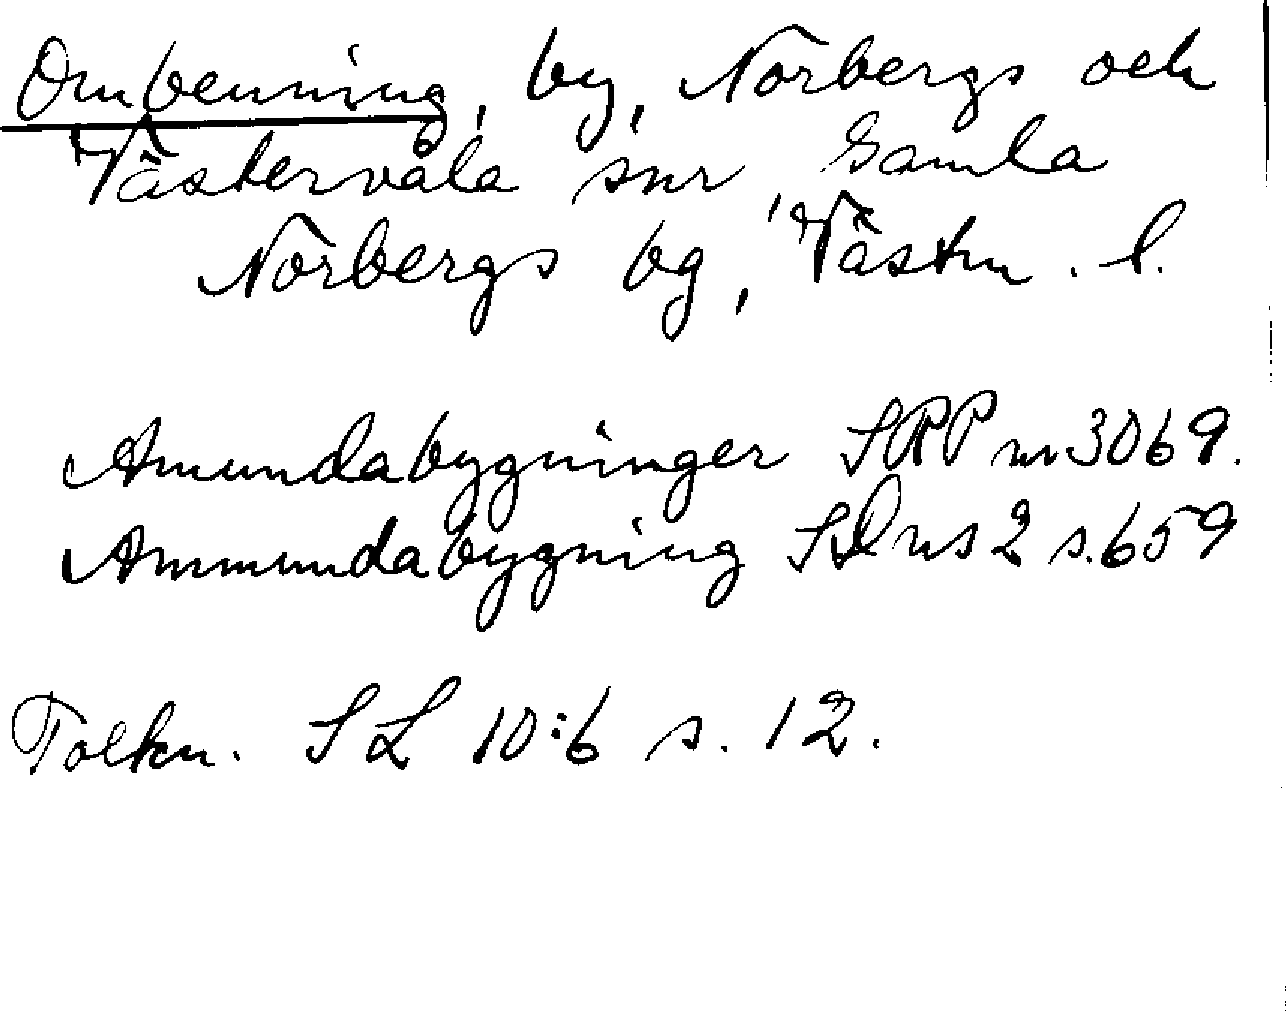 Ombenning, by, Norbergs och
Västervåla snr, Gamla
Norbergs bg, Västm. l.
Amundabygninger SRP nr 3069.
Ammundabygning SD ns 2 s. 659
Tolkn. SL 10:6 s. 12.